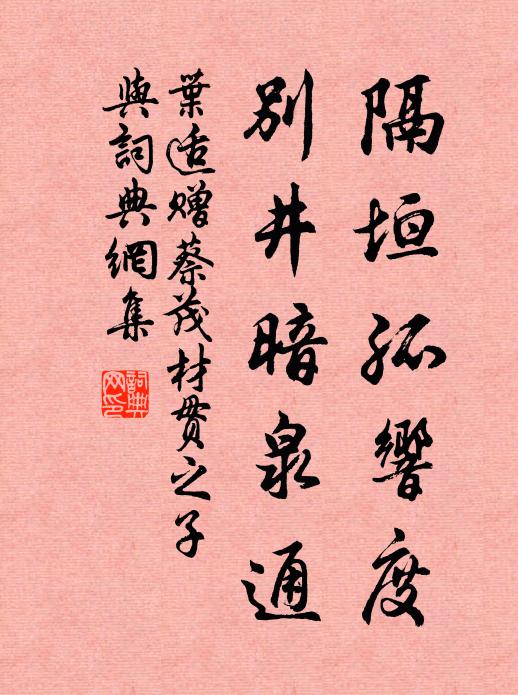 隔垣孤響度
別井暗泉通
葉适贈蔡茂材貫之子
與詞典網集
詞典
网印